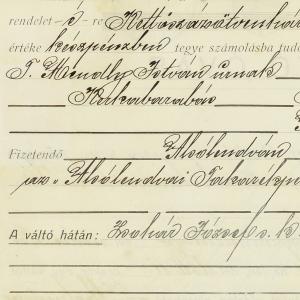 rendelet - é re Kettőszázötvenhár
értéke készpénzben tegye számolásba tud
T. Mendly István úrnak
Rákabarabás
Fizetendő Alsólendván
az „Alsólendvai Takarékpn
A váltó hátán: József s. k.